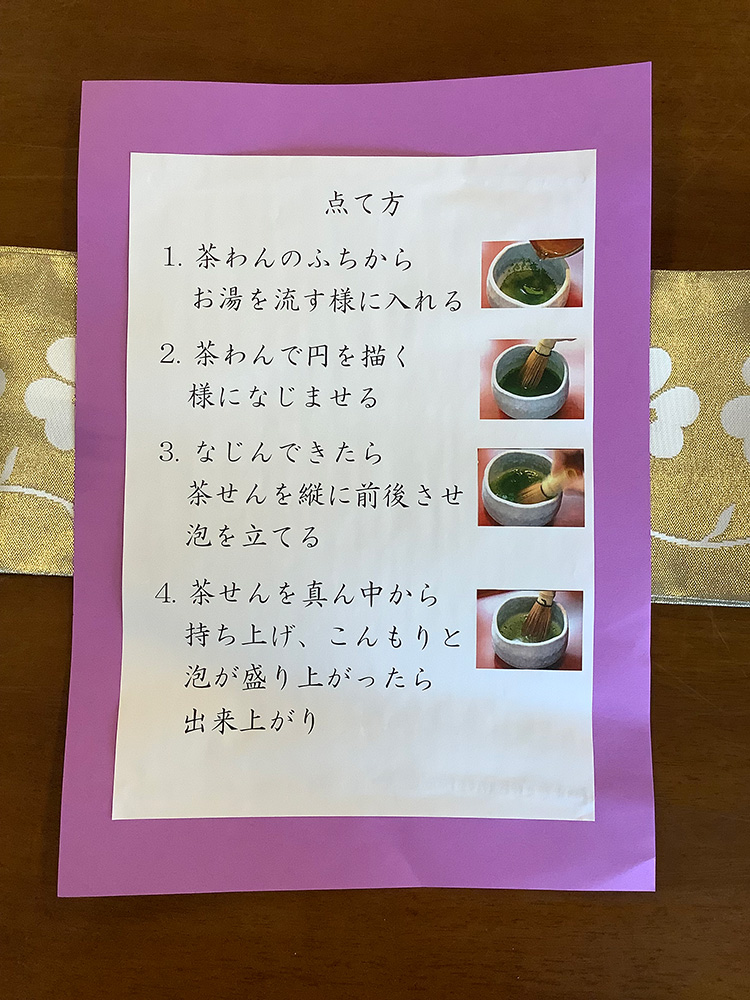 点て方
1. 茶わんのふちから
お湯を流す様に入れる
2. 茶わんで円を描く
様になじませる
3. なじんできたら
茶せんを縦に前後させ
泡を立てる
4. 茶せんを真ん中から
持ち上げ、こんもりと
泡が盛り上がったら
出来上がり